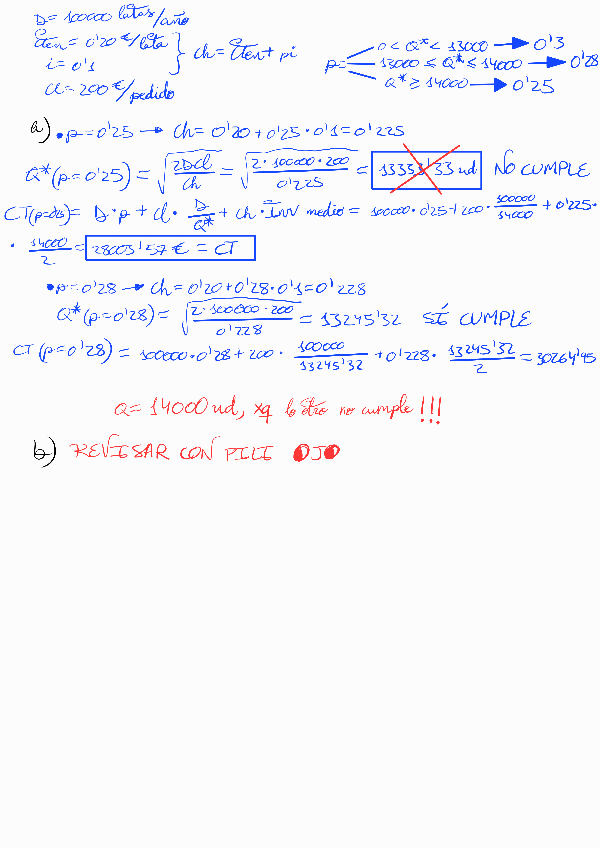 D = 100000 latas/año
Cten = 0'20 €/lata
i = 0'1
Cl = 200 €/pedido
Ch = Cten + pi
p =
0 < Q* < 13000 → 0'3
13000 ≤ Q* ≤ 14000 → 0'28
Q* ≥ 14000 → 0'25
a) • p = 0'25 → Ch = 0'20 + 0'25 · 0'1 = 0'225
Q*(p = 0'25) = √(2DCl / Ch) = √(2 · 100000 · 200 / 0'225) = 13333'33 ud NO CUMPLE
CT(p=0'25) = D · p + Cl · D/Q* + Ch · Inv medio = 100000 · 0'25 + 200 · 100000/14000 + 0'225 ·
· 14000/2 = 28003'57 € = CT
• p = 0'28 → Ch = 0'20 + 0'28 · 0'1 = 0'228
Q*(p = 0'28) = √(2 · 100000 · 200 / 0'228) = 13245'32 SÍ CUMPLE
CT(p = 0'28) = 100000 · 0'28 + 200 · 100000/13245'32 + 0'228 · 13245'32/2 = 30264'95
Q = 14000 ud, xq lo otro no cumple !!!
b) REVISAR CON PILI OJO